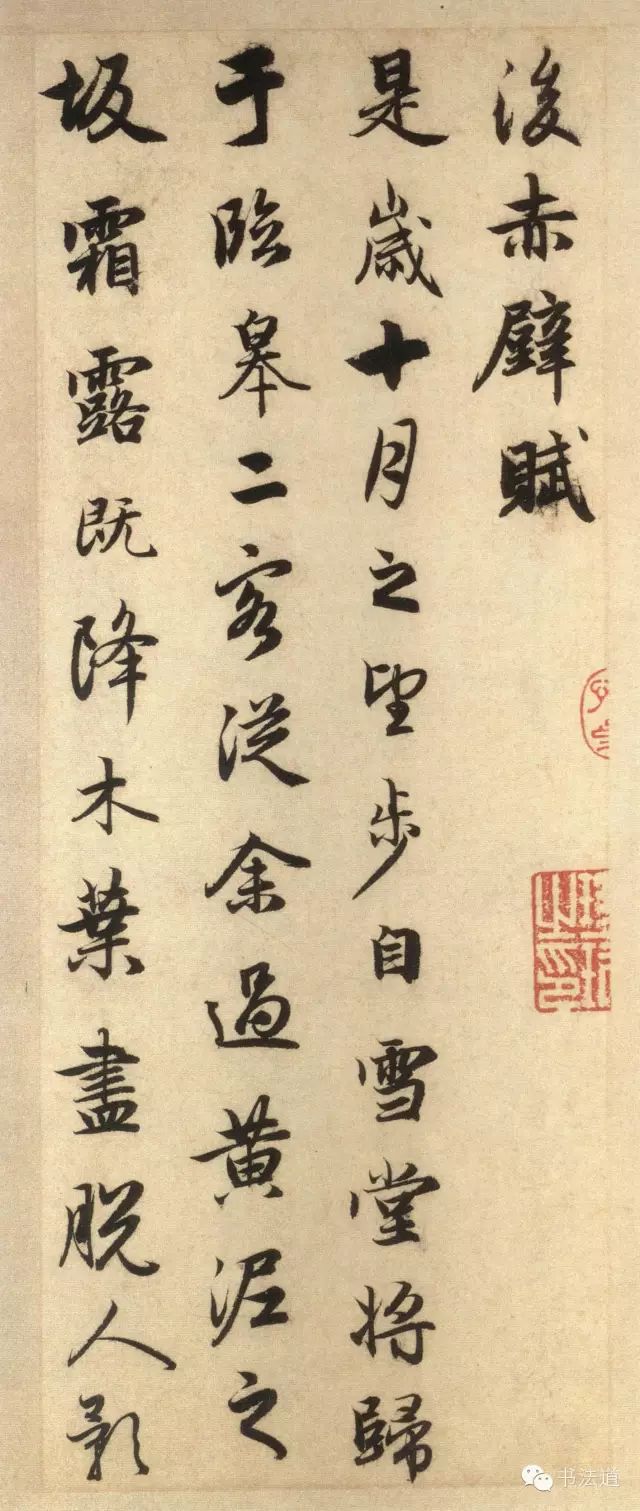 後赤壁賦
是歲十月之望步自雪堂將歸
于臨皋二客從余過黃泥之
坂霜露既降木葉盡脫人影
书法道